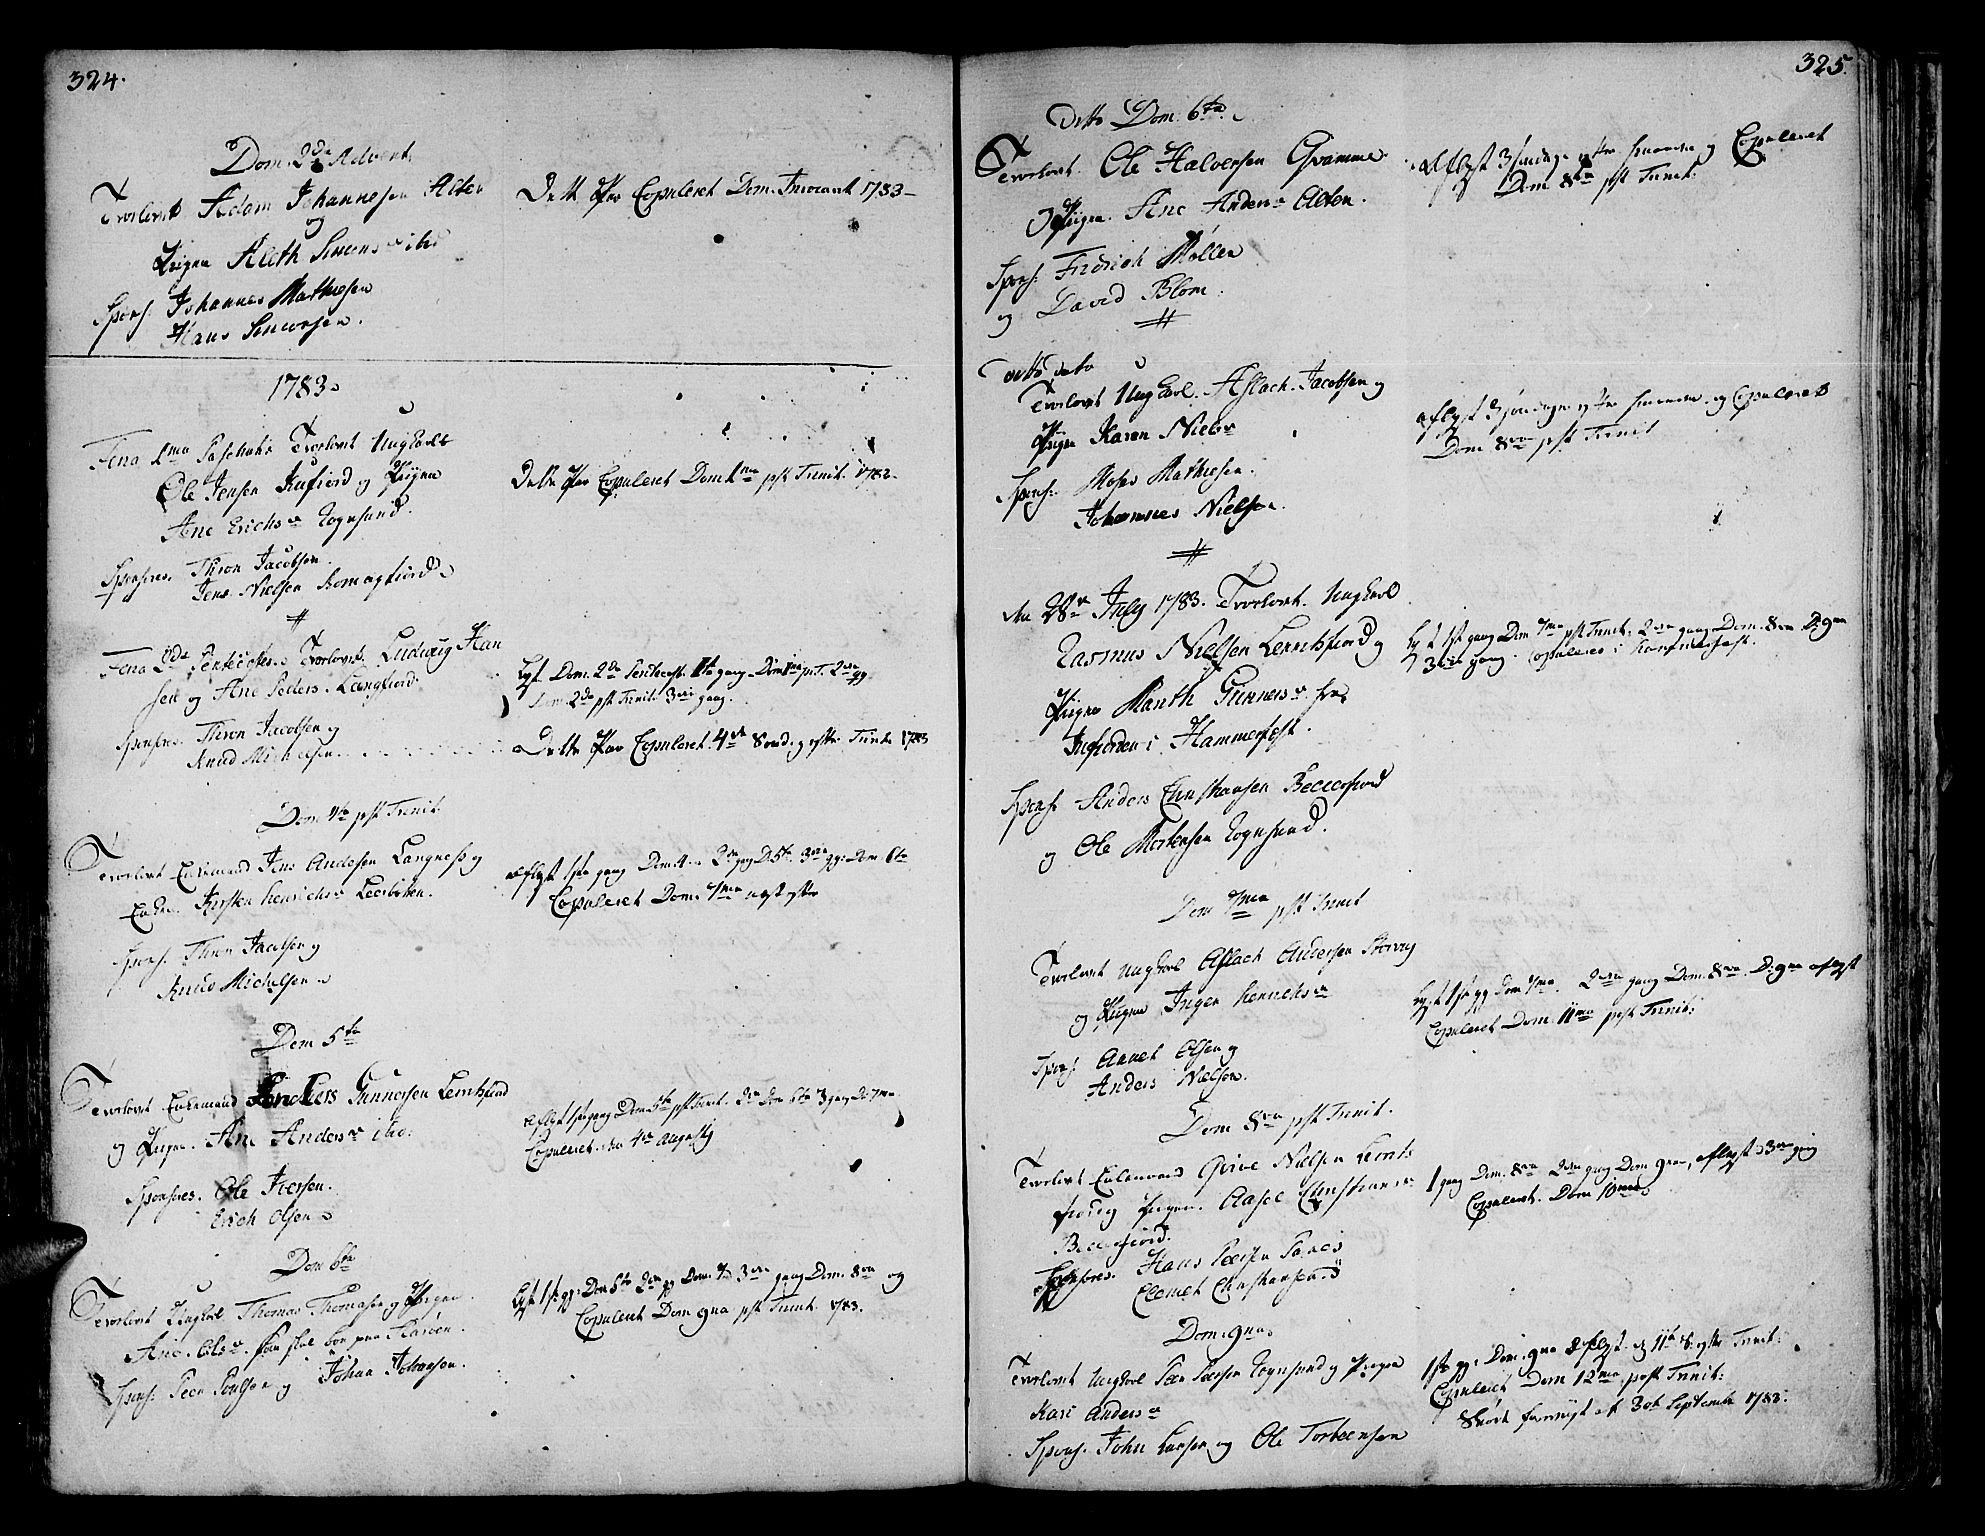 324.
Dom. 2da Advent.
Trolovet Adam Johannesen Alten
og
Pigen Aleth Simensdr ibid
Spons. Johannes Mathiesen
Hans Simonsen.
Dette Par Copuleret Dom. Invocavit 1783
1783.
Feria 2da Paschatis Trolovet Ungkarl
Ole Jensen Kufiord og Pigen
Ane Erichsdr Rognsund.
Sponsores. Thron Jacobsen.
Jens Nielsen Komagfiord
Dette Par Copuleret Dom 1ma post Trinit. 1783.
Feria 2da Pentecostes. Trolovet Ludvig Han
sen og Ane Peders. Langfiord.
Sponsores. Thron Jacobsen og
Knud Michelsen.
Lyst Dom. 2da Pentecost. 1te gang. Dom 1ma p. T. 2den gg
Dom. 2da post Trinit. 3die gang.
Dette Par Copuleret 4de Sondag efter Trinit. 1783
Dom 4ta post Trinit.
Trolovet Enkemand Jens Andersen Langness og
Enken. Kirsten Henrichsdr Leerbotten.
Spons. Thron Jacobsen og
Knud Michelsen
aflyst 1ste gang Dom. 4. 2den gang D. 5te. 3die gg: Dom. 6ta
Copuleret Dom. 7ma nest efter
Dom 5ta
Trolovet Enkemand Anders Gunnersen Lerritsfiord
og Pigen. Ane Andersdr ibid.
Sponsores. Ole Iversen.
Erich Olsen
aflyst 1ste gang Dom 5ta post Trinit. 2de Dom 6ta 3 gang D. 7ma
Copuleret den 4de Augusti
Dom 6ta
Trolovet Ungkarl Thomas Thomasen og Pigen
Ane Olsdr. som skal boe paa Stasøen.
Spons. Peer Poulsen og Johan Johansen.
Lyst 1ste gg: Dom 6ta 2den gg Dom. 7de 3die gang Dom. 8va og
Copuleret Dom 9na post Trinit. 1783.
325.
Ditto Dom. 6ta.
Trolovet. Ole Halversen Qvamme
og Pigen. Ane Andersdr Alten.
Spons. Fridrich Møller
og David Blom.
aflyst 3 Sondage efter hinanden og Copuleret
Dom 8va post Trinit.
ditto dato
Trolovet Ungkarl. Aslach. Jacobsen og
Pigen Karen Nielsdr
Spons. Moses Mathiesen.
Johannes Nielsen.
aflyst 3 sondage efter hinanden og Copuleret
Dom 8va post Trinit
den 28de July 1783. Trolovet. Ungkarl
Rasmus Nielsen Lerritsfiord og
Pigen Marith Gunnersdr fra
Indfiorden i Hammerfest.
Spons. Anders Christiansen Beccerfiord
og Ole Mortensen Rognsund.
Lyst 1ste gang Dom 7ma post Trinit. 2den gang Dom. 8va D. 9na
3die gang. Copuleret i Hammerfest.
Dom 7ma post Trinit
Trolovet Ungkarl Aslach Andersen Storvig
og Pigen Inger Henrichsdr
Spons. Arnet Olsen og
Anders Nielsen.
Lyst 1ste gg Dom 7ma. 2den gang Dom. 8va. D. 9na aflyst
Copuleret Dom. 11ma post Trinit:
Dom 8va post Trinit.
Trolovet Enkemand Qvive Nielsen Lerrits
fiord og Pigen. Aasel Christiansdr
Beccerfiord.
Sponsores. Hans Peersen
Clemet Christiansen
1 gang Dom. 8va 2den gang Dom 9na, aflyst 3die gang
Copuleret. Dom 10ma
Dom. 9na
Trolovet Ungkarl Peer Peersen Rognsund og Pigen
Kari Andersdr
Spons. John Larsen og Ole Torbeensen
1ste gg: Dom: 9na aflyst. d. 11te S. efter Trinit:
Copuleret Dom 12ma post Trinit:
30te Septembr 1783.